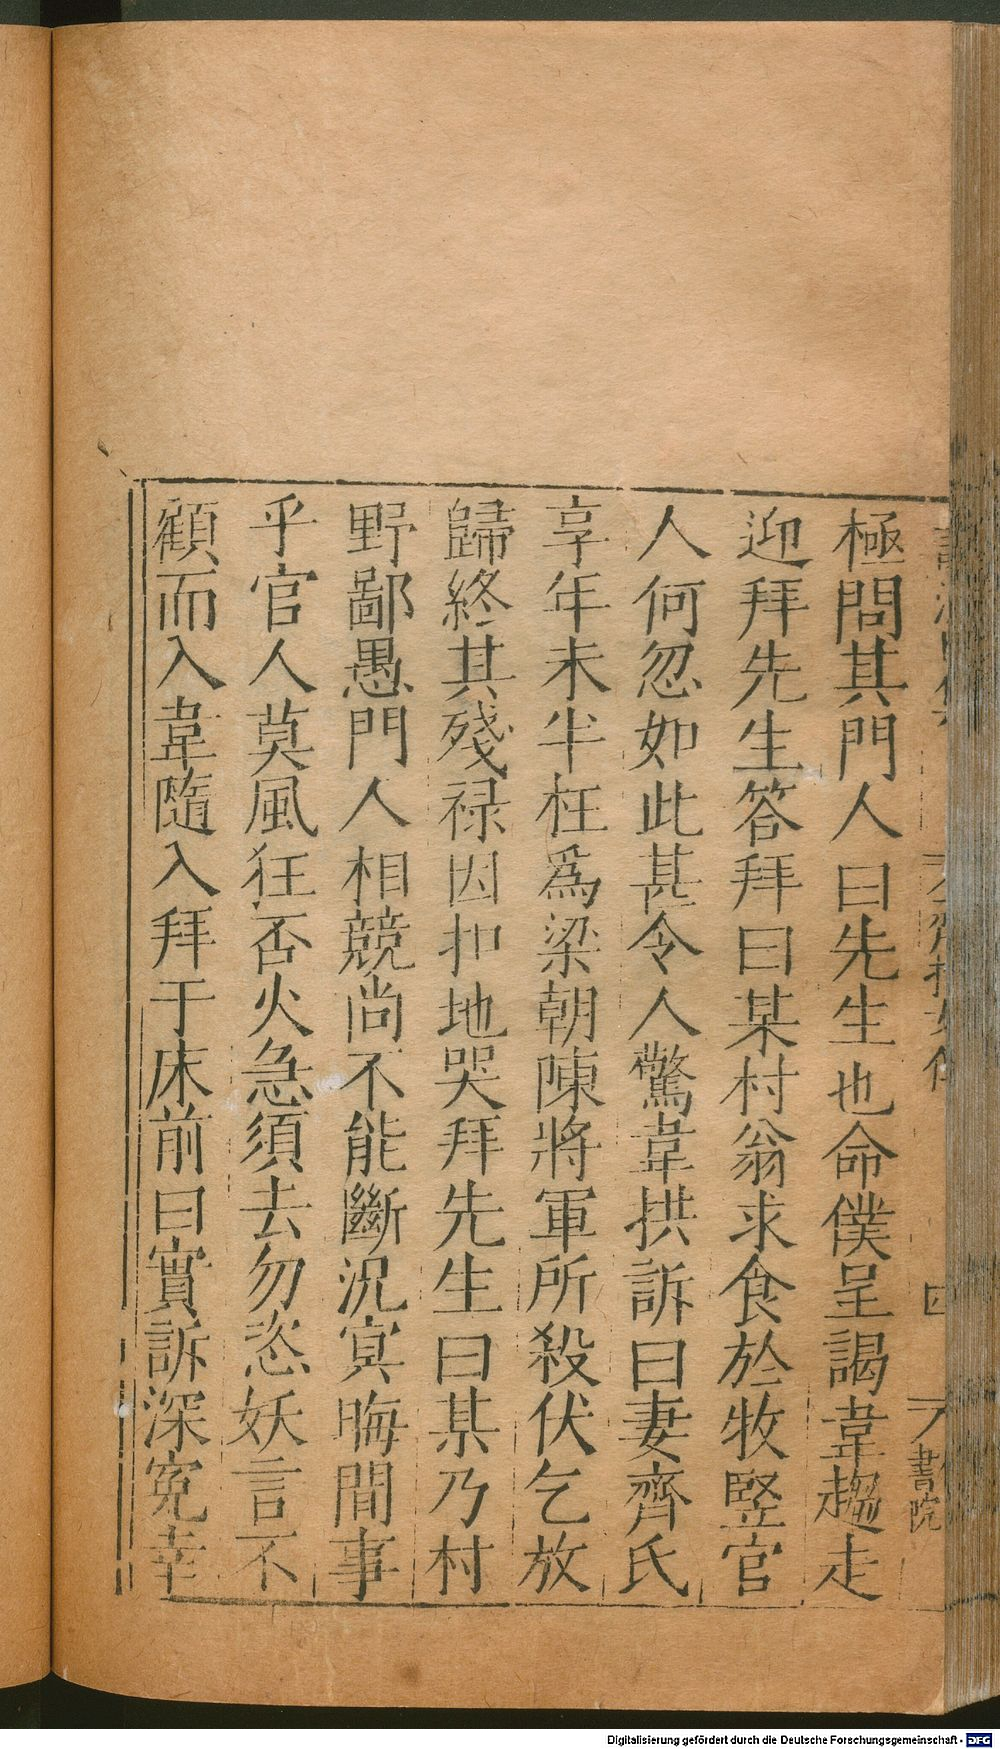 極問其門人曰先生也命僕呈謁韋趨走
迎拜先生答拜曰某村翁求食於牧豎官
人何忽如此甚令人驚韋拱訴曰妻齊氏
享年未半枉爲梁朝陳將軍所殺伏乞放
歸終其殘禄因扣地哭拜先生曰某乃村
野鄙愚門人相競尚不能斷況冥晦間事
乎官人莫風狂否火急須去勿恣妖言不
顧而入韋隨入拜于床前曰實訴深寃幸
四
書院
Digitalisierung gefördert durch die Deutsche Forschungsgemeinschaft - DFG